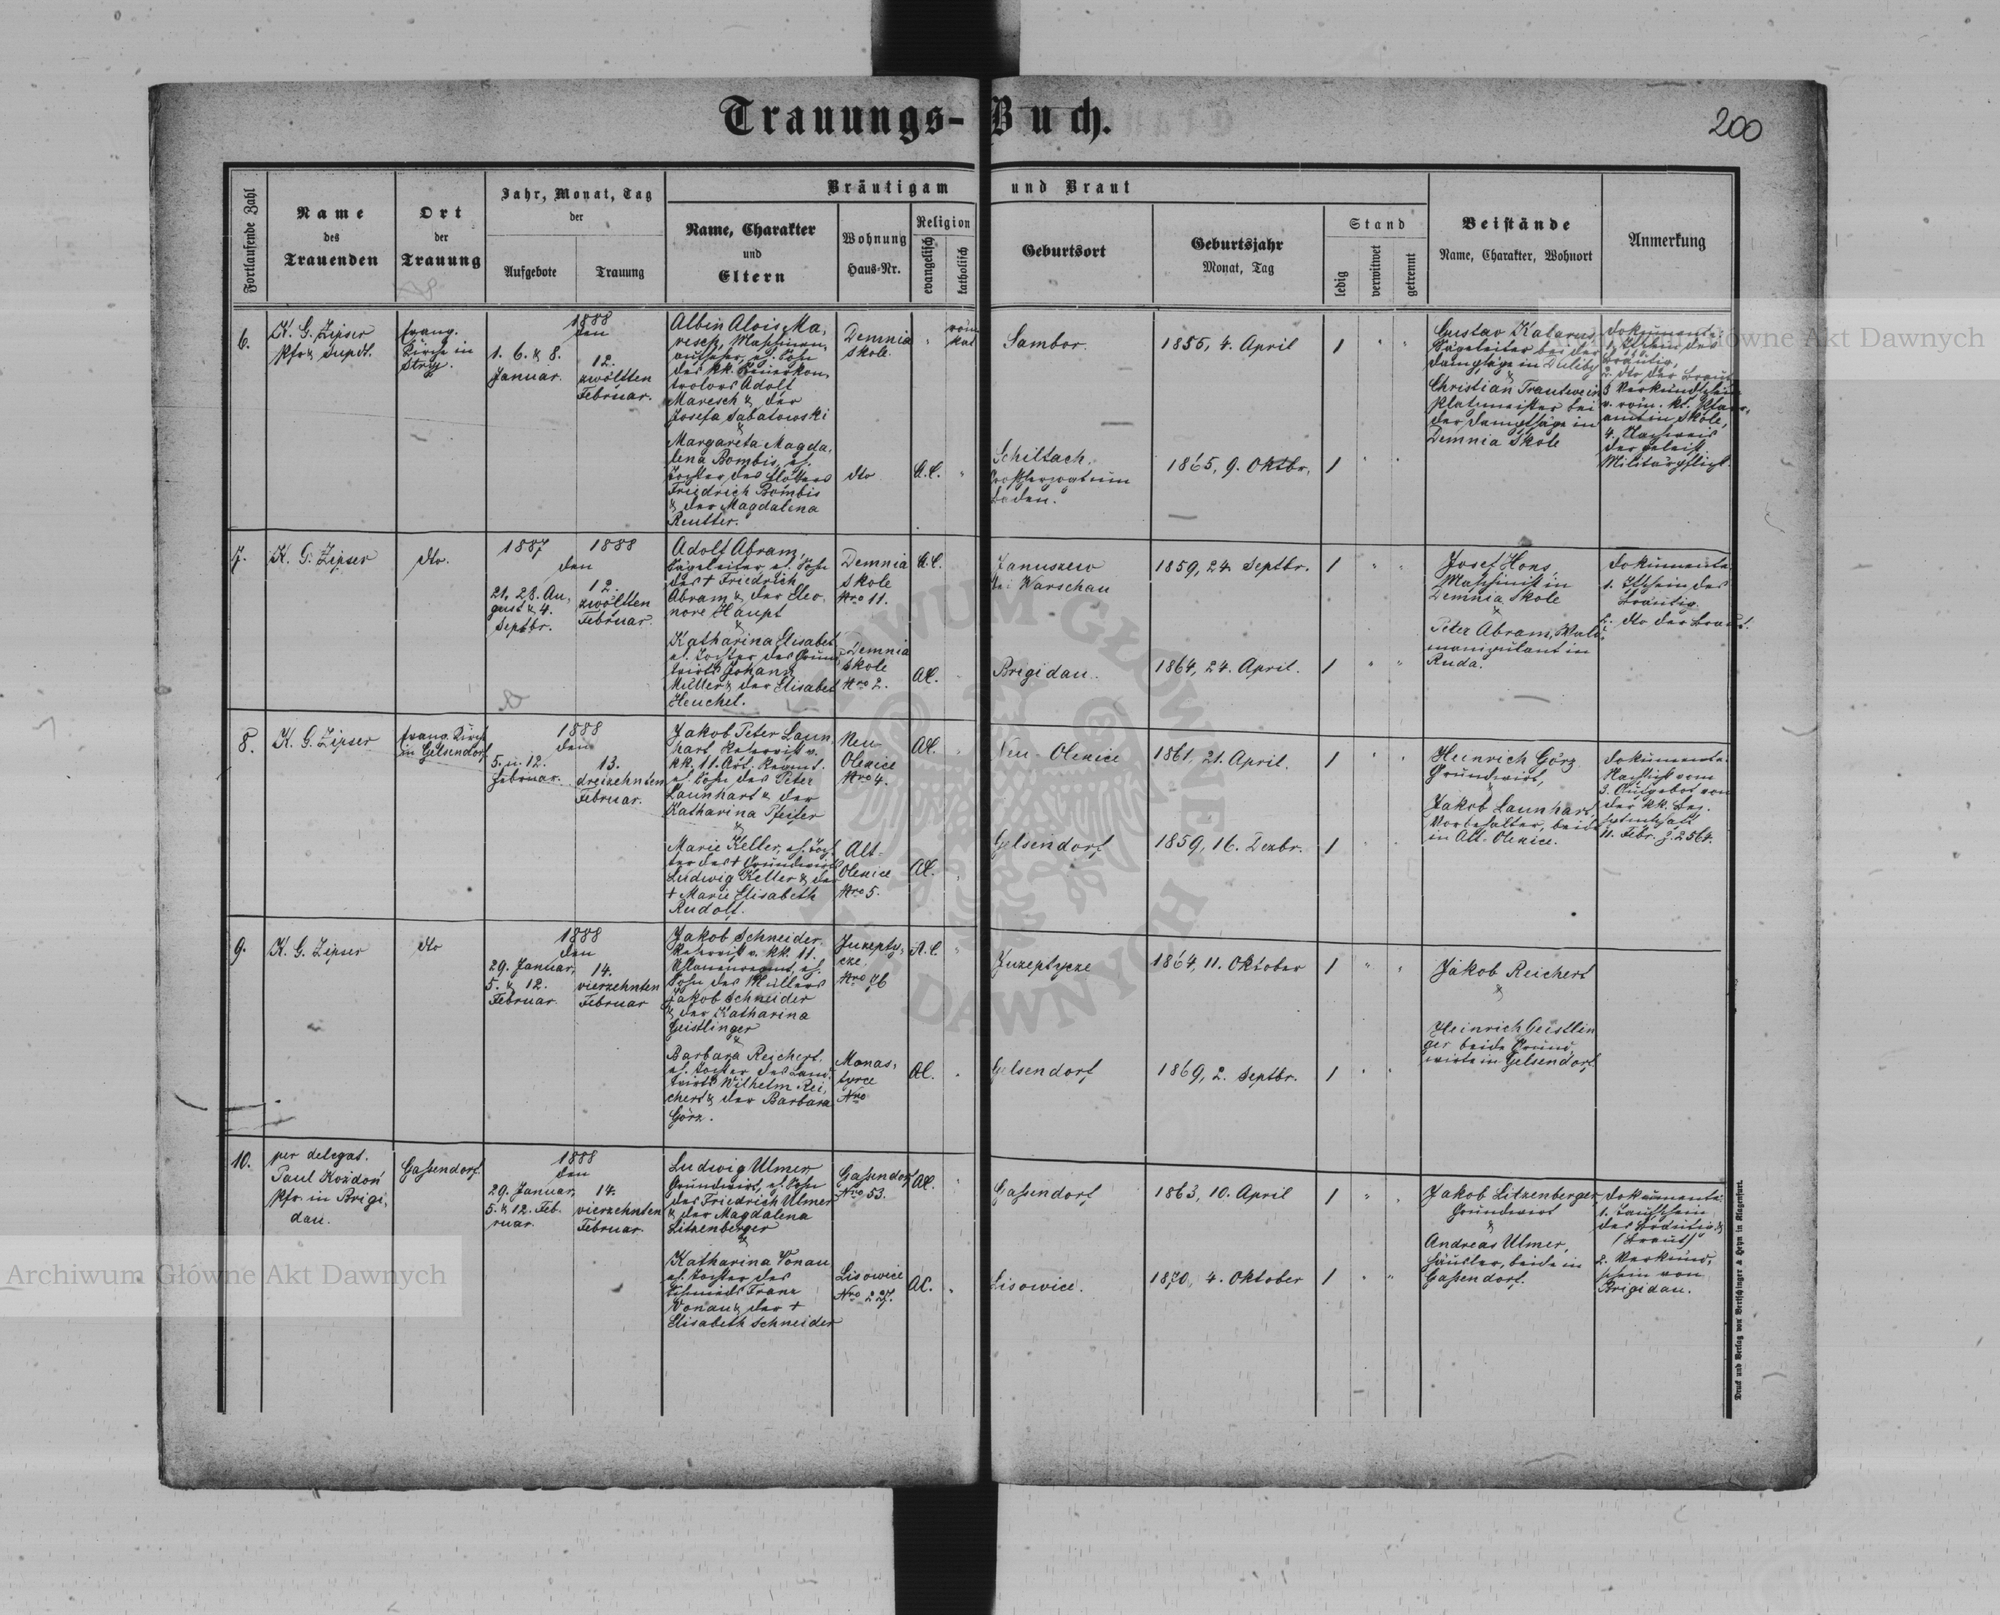 Trauungs-Buch.
200
Fortlaufende Zahl
Name
des
Trauenden
Ort
der
Trauung
Jahr, Monat, Tag
der
Aufgebote
Trauung
Bräutigam und Braut
Name, Charakter
und
Eltern
Wohnung
Haus-Nr.
Religion
evangelisch
katholisch
Geburtsort
Geburtsjahr
Monat, Tag
Stand
ledig
verwitwet
getrennt
Beistände
Name, Charakter, Wohnort
Anmerkung
6.
K. G. Zipser
Pfr & Supdt.
Evang.
Kirche in
Stryj.
1888
den
1. 6. & 8.
Januar.
12.
zwölften
Februar.
Albin Alois Ma-
resch, Maschinen-
aufseher, el. Sohn
des kk.
Adolf
Maresch & der
Josefa Sabatowski
&
Margareta Magda-
lena Bombis, el.
Tochter des Flößers
Friedrich Bombis
& der Magdalena
Reutter.
Demnia
Skole.
röm
kat
dto
A.C.
Sambor.
1855, 4. April
1
Schiltach,
Großherzogtum
Baden.
1865, 9. Oktbr.
1
Gustav
Sägeleiter bei der
Dampfsäge in Duliby
&
Christian Trautwein
Platzmeister bei
der Dampfsäge in
Demnia Skole
Dokumente
1.
Bräutig.
2. dto der Braut
3 Verkündschein
v. röm. kt. Pfarr-
amt in Skole,
4. Nachweis
der geleist.
Militärpflicht.
7.
K. G. Zipser
dto.
1887
1888
den
21, 28. Au-
gust & 4.
Septbr.
12.
zwölften
Februar.
Adolf Abram,
Sägeleiter, el. Sohn
des + Friedrich
Abram & der Eleo-
nore Haupt
&
Katharina Elisabet
el. Tochter des Grund-
wirts Johann
Müller & der Elisabet
Heuchel.
Demnia
Skole
Nro 11.
A.C.
Demnia
Skole
Nro 2.
AC.
Januszew
bei Warschau
1859, 24. Septbr.
1
Brigidau.
1864, 24. April.
1
Josef Hons,
Maschinist in
Demnia Skole
&
Peter Abram, Wald-
manipulant in
Ruda.
Dokumente
1. Tfschein des
Bräutig.
2. dto der Braut.
8.
K. G. Zipser
Evang. Kirche
in Gelsendorf
1888
den
5. u. 12.
Februar.
13.
dreizehnten
Februar.
Jakob Peter Laun-
hart, Reservist v.
kk. 11. Art. Regmt.
el. Sohn des Peter
Launhart & der
Katharina Pfeifer
&
Marie Keller, el. Toch-
ter des + Grundwirts
Ludwig Keller & der
+ Marie Elisabeth
Rudolf.
Neu-
Olexice
Nro 4.
AC.
Alt-
Olexice
Nro 5.
AC.
Neu-Olexice
1861, 21. April.
1
Gelsendorf
1859, 16. Dezbr.
1
Heinrich Görz
Grundwirt,
&
Jakob Launhart,
beide
in Alt-Olexice.
Dokumente:
Nachsicht vom
3. Aufgebot von
der kk. Bez.
11. Febr. Z. 2564.
9.
K. G. Zipser
dto
1888
den
29. Januar,
5. & 12.
Februar.
14.
vierzehnten
Februar
Jakob Schneider
Reservist v. kk. 11.
Uhlanenregmt, el.
Sohn des Müllers
Jakob Schneider
& der Katharina
Geistlinger
&
Barbara Reichert,
el. Tochter des Land-
wirts Wilhelm Rei-
chert & der Barbara
Görz.
Juzepty-
cze.
Nro 96
A.C
Monas-
tyrce
Nro
AC.
Juzeptycze
1864, 11. Oktober
1
Gelsendorf
1869, 2. Septbr.
1
Jakob Reichert
&
Heinrich Geistlin
ger beide Grund-
wirte in Gelsendorf
10.
per delegat.
Paul Kożdoń
Pfr. in Brigi-
dau.
Gaßendorf.
1888
den
29. Januar,
5. & 12. Feb-
ruar.
14.
vierzehnten
Februar.
Ludwig Ulmer
Grundwirt, el. Sohn
des Friedrich Ulmer
& der Magdalena
Litzenberger
&
Katharina Vonau
el. Tochter des
Schmieds Franz
Vonau & der +
Elisabeth Schneider
Gaßendorf
Nro 53.
AC.
Lisowice
Nro 227.
AC.
Gaßendorf
1863, 10. April
1
Lisowice.
1870, 4. Oktober
1
Jakob Litzenberger,
Grundwirt
&
Andreas Ulmer,
Häusler, beide in
Gaßendorf.
Dokumente:
1. Taufschein
des Bräutig. &
(Braut)
2. Verkünd-
schein von
Brigidau.
Druck und Verlag von Bertschinger & Heyn in Klagenfurt.
Archiwum Główne Akt Dawnych
Archiwum Główne Akt Dawnych